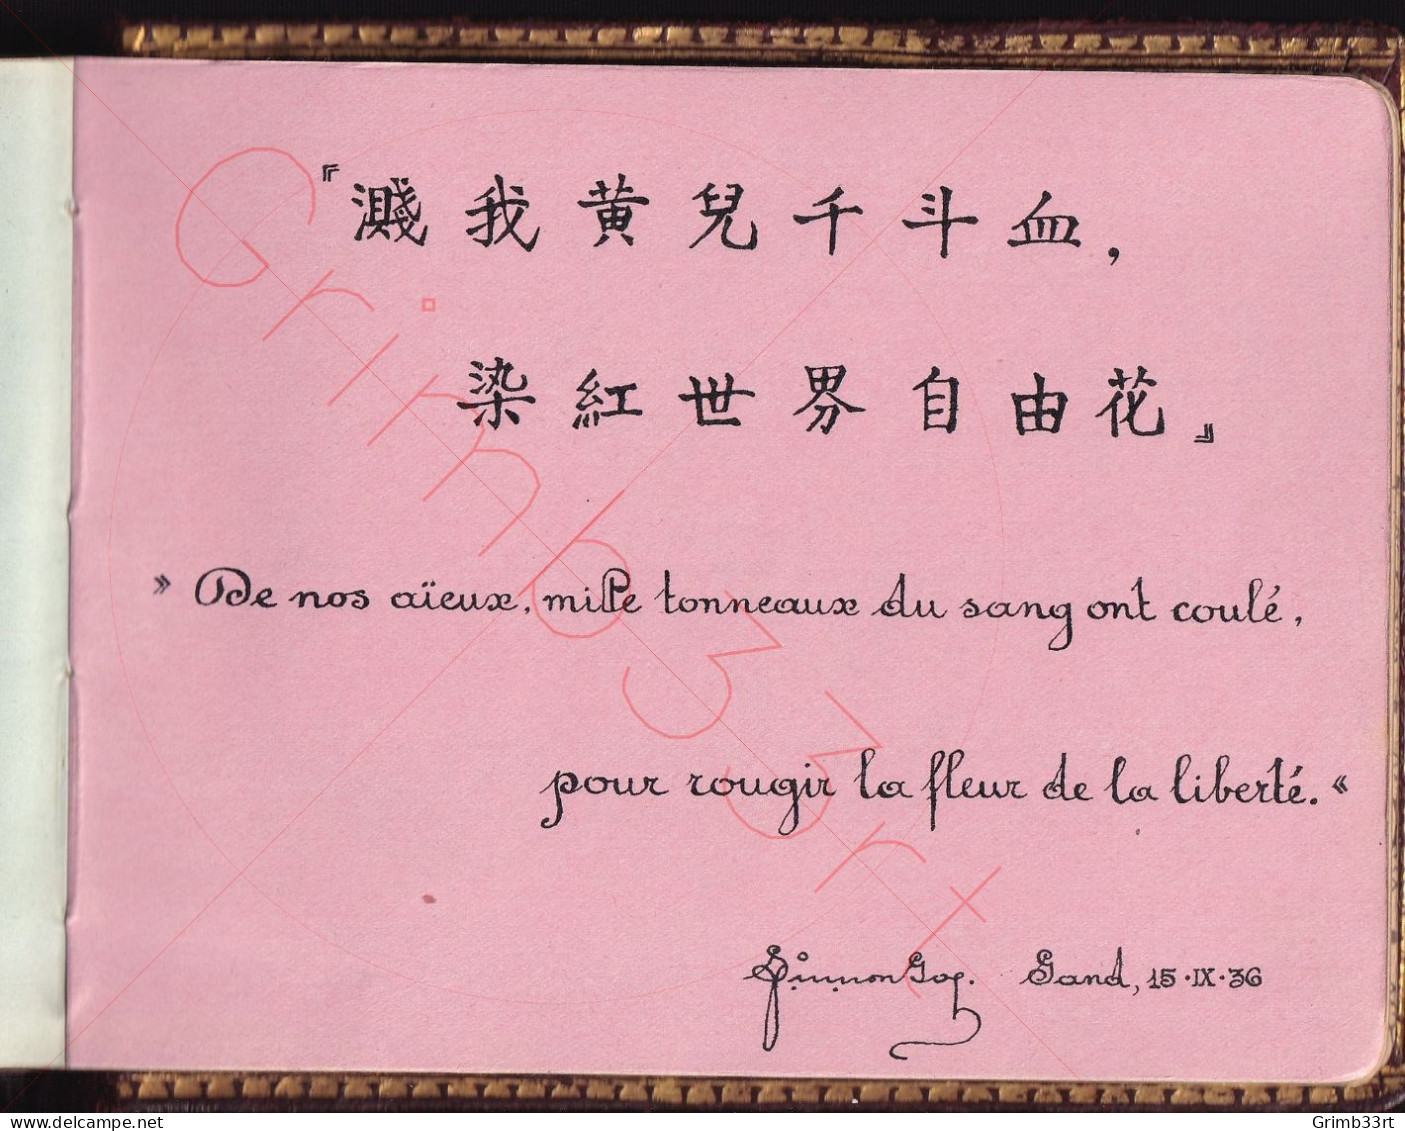 『濺我黄兒千斗血,
染紅世界自由花』
» De nos aïeux, mille tonneaux du sang ont coulé,
pour rougir la fleur de la liberté. «
Gand, 15·IX·36
Grimb33rt
Grimb33rt